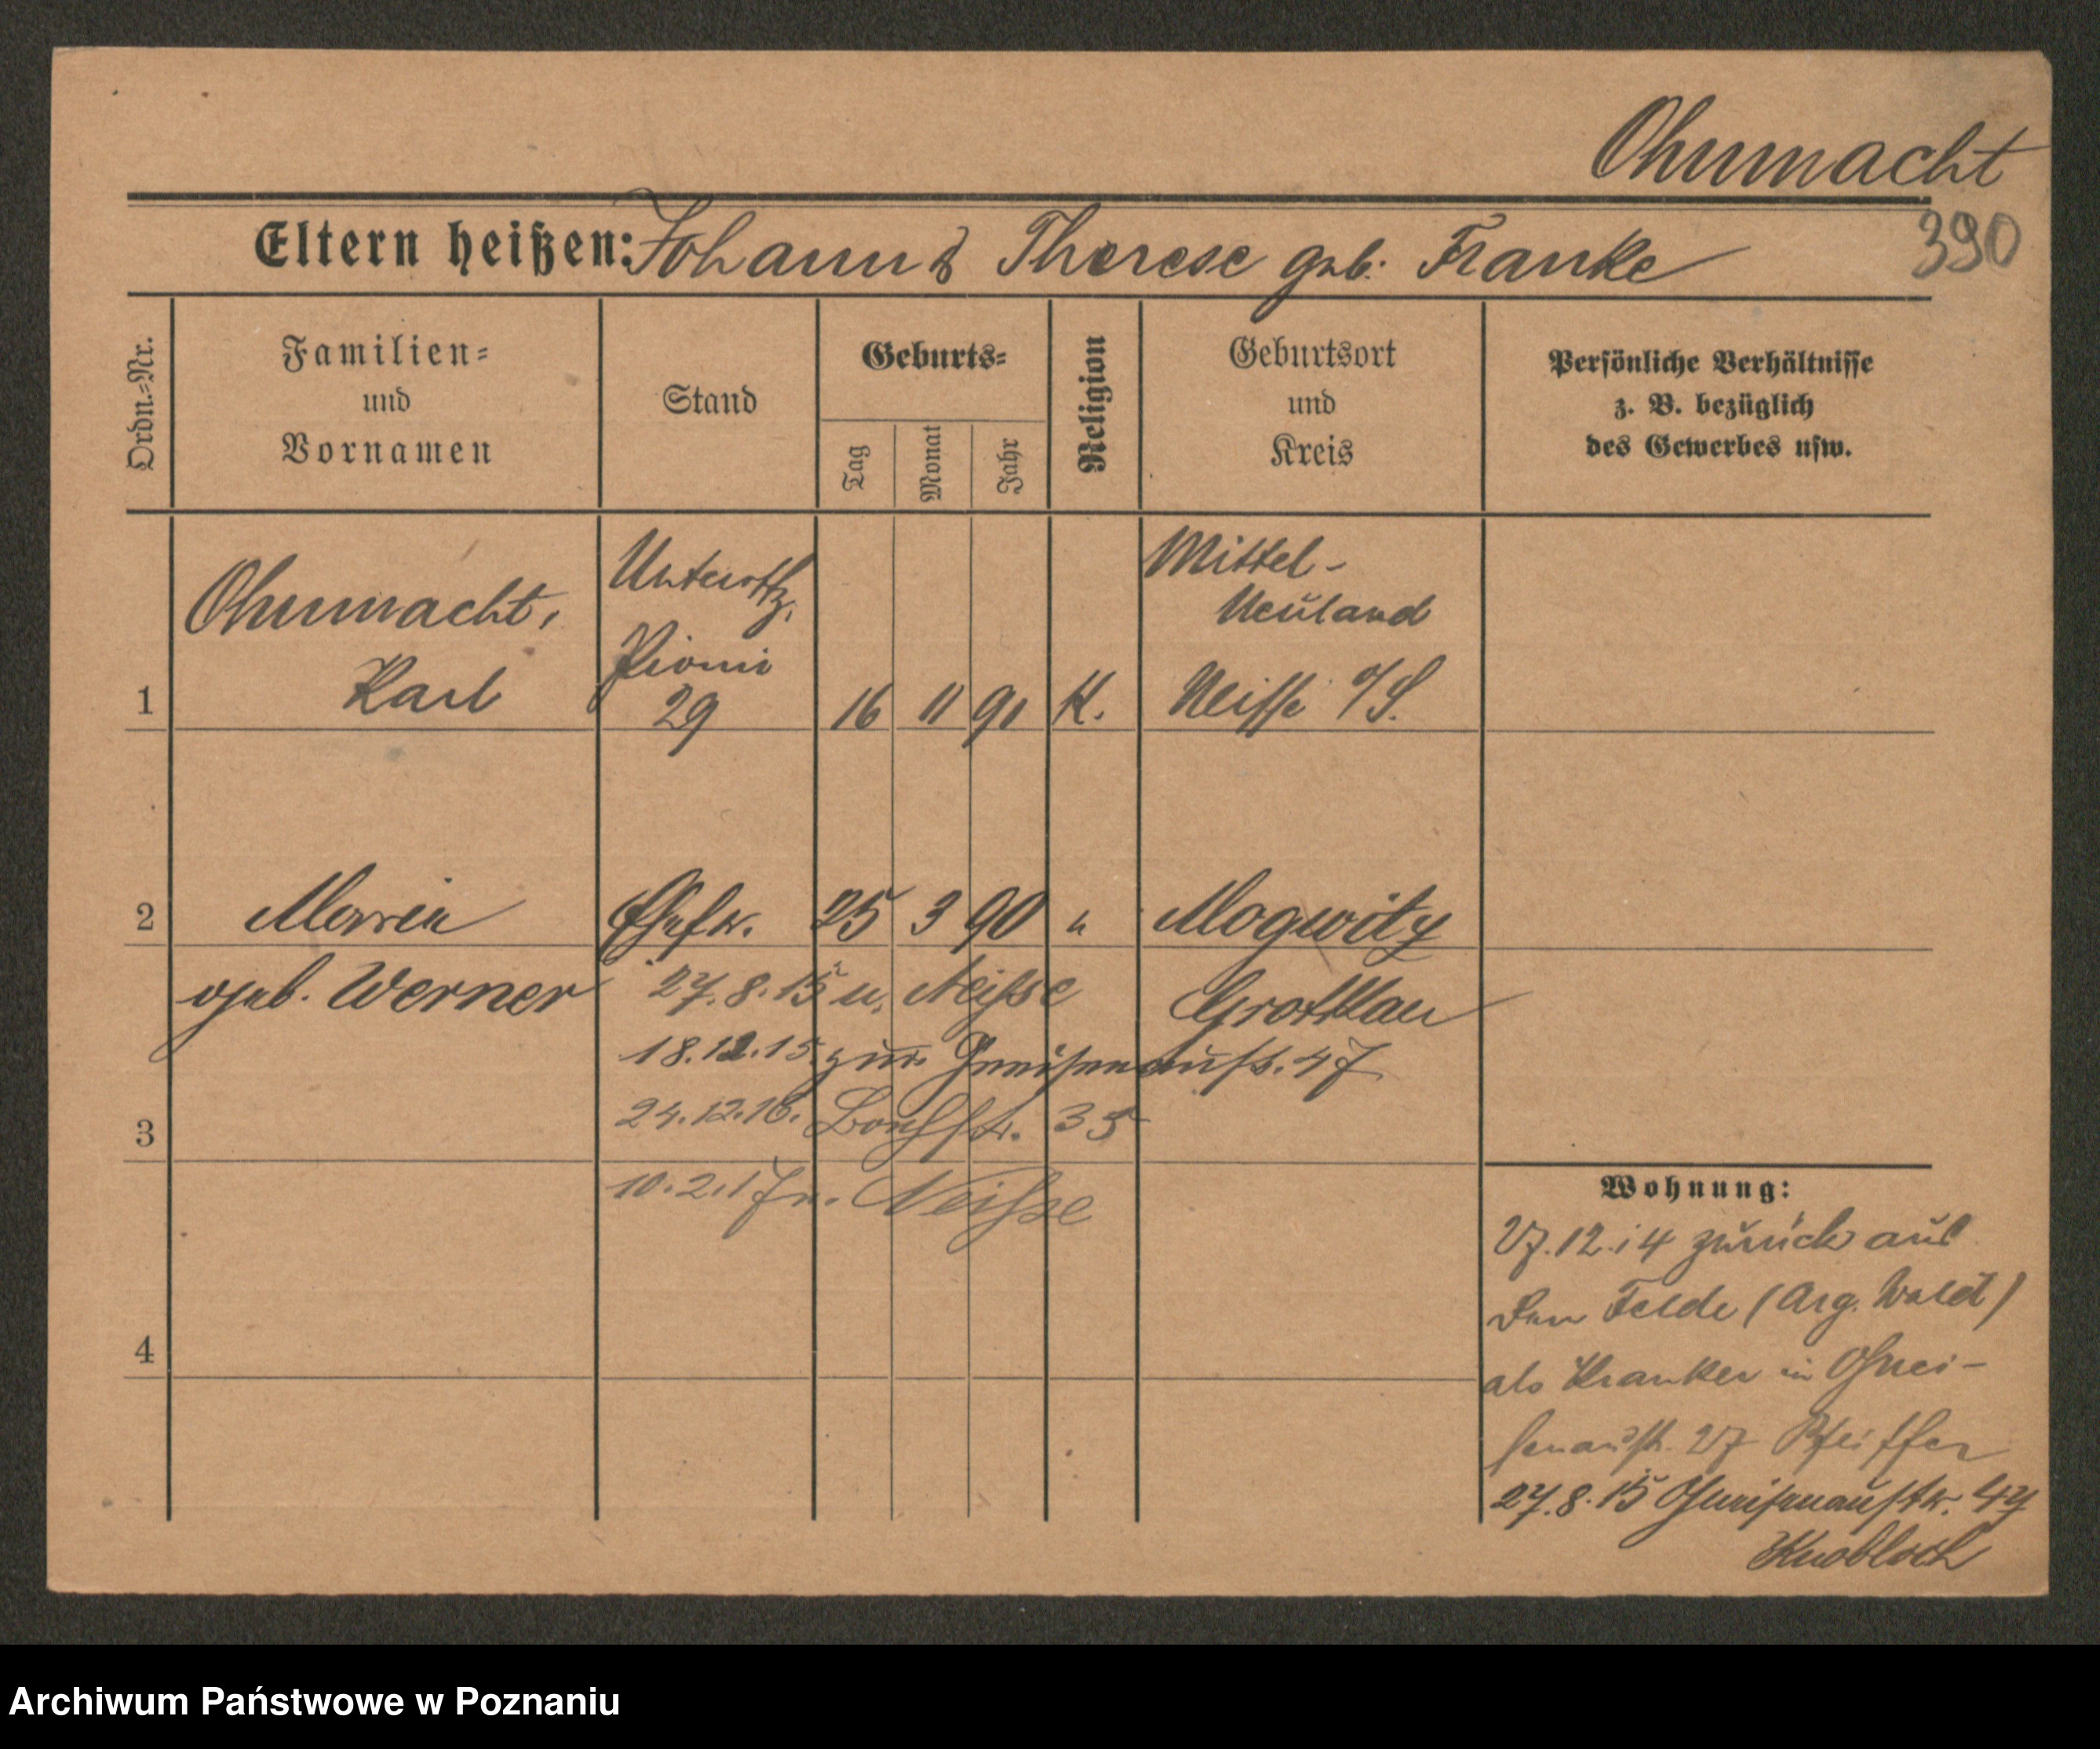 Ohnmacht
390
Eltern heißen: Johann & Therese geb. Franke
Ordn.-Nr.
Familien-
und
Vornamen
Stand
Geburts-
Tag
Monat
Jahr
Religion
Geburtsort
und
Kreis
Persönliche Verhältnisse
z. B. bezüglich
des Gewerbes usw.
1
Ohnmacht,
Karl
Unteroffz.
Pioni
29
16 11 91 K.
Mittel-
Neuland
Neisse O/S.
2
Maria
geb. Werner
Ehefr. 25 3 90 "
Mogwitz
Grottkau
27.8.15 n. Neisse
18.12.15. zur. Gneisenaustr. 47
3
24.12.16. 35
10.2.17 n. Neisse
4
Wohnung:
27.12.14 zurück aus
dem Felde (Arg. Wald)
als Kranker in Gnei-
senaustr. 27 Pfeiffer
27.8.15 Gneisenaustr. 47
Knobloch
Archiwum Państwowe w Poznaniu